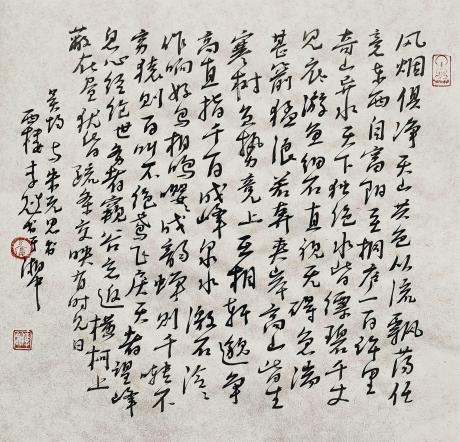 风烟俱净天山共色从流飘荡任
意东西自富阳至桐庐一百许里
奇山异水天下独绝水皆缥碧千丈
见底游鱼细石直视无碍急湍
甚箭猛浪若奔夹岸高山皆生
寒树负势竞上互相轩邈争
高直指千百成峰泉水激石泠々
作响好鸟相鸣嘤々成韵蝉则千啭不
穷猿则百叫不绝鸢飞戾天者望峰
息心经纶世务者窥谷忘返横柯上
蔽在昼犹昏疏条交映有时见日
吴均与朱元思书
西楼李